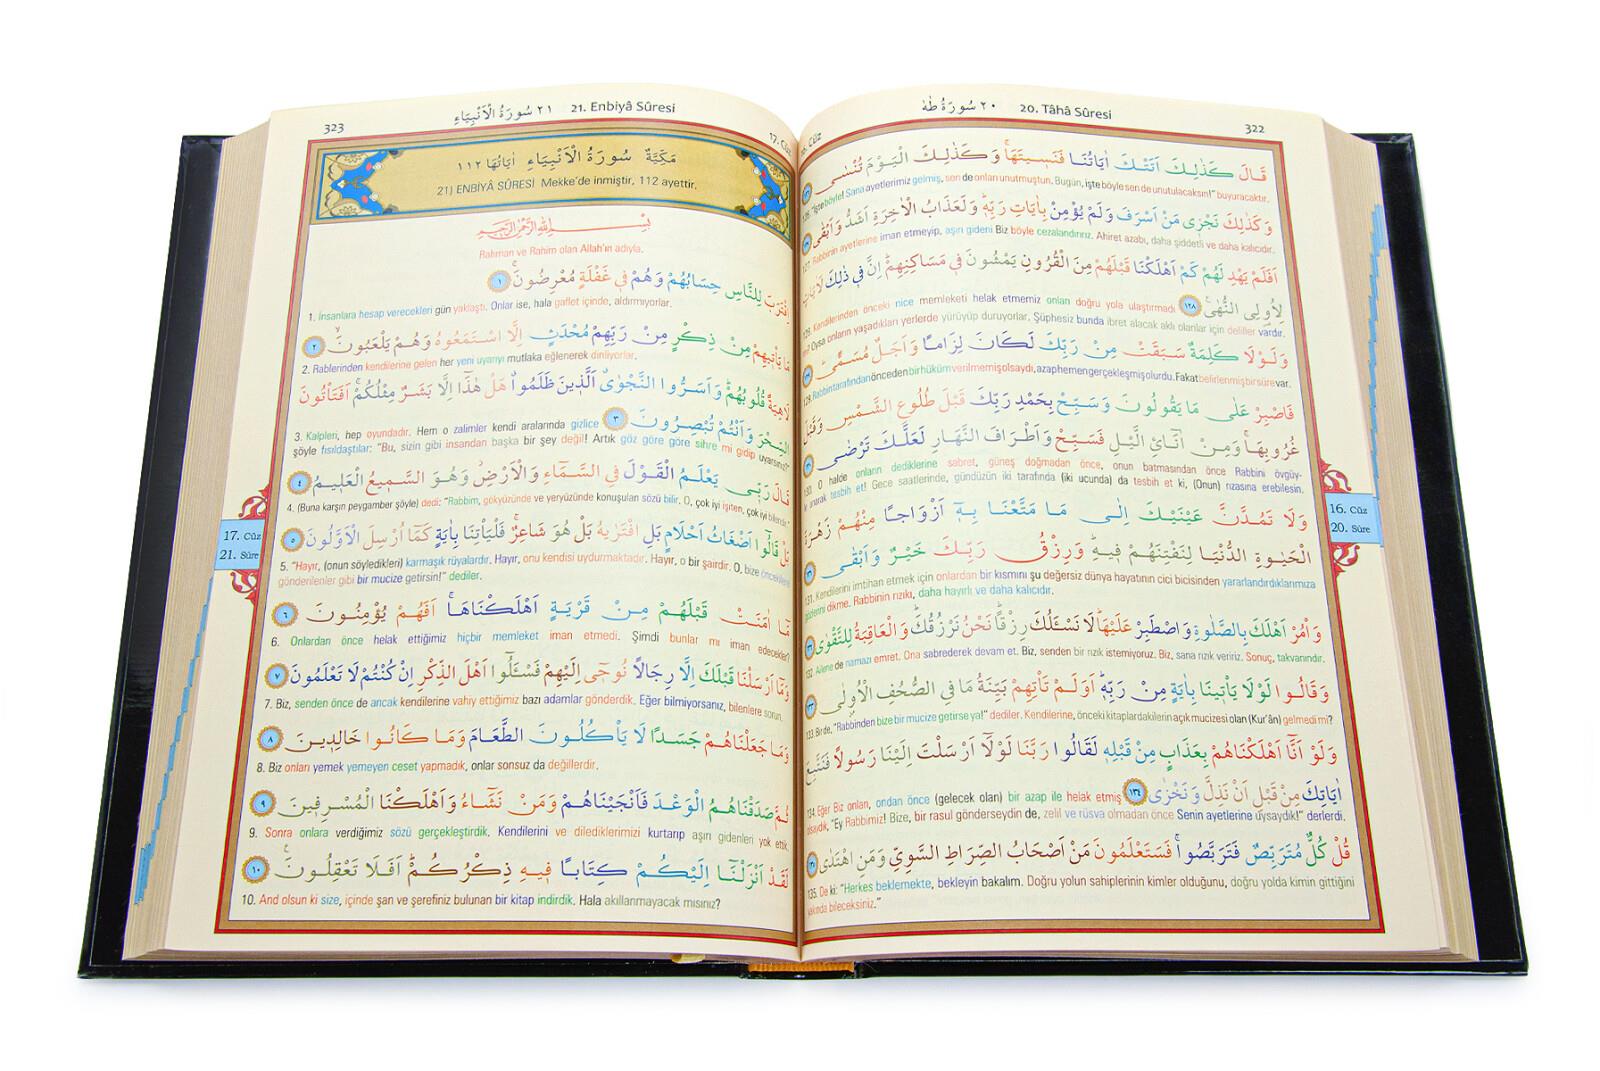 ٢٠ سُورَةُ طٰهٰ 20. Tâhâ Sûresi
322
قَالَ كَذٰلِكَ اَتَتْكَ اٰيَاتُنَا فَنَسٖيتَهَاۚ وَكَذٰلِكَ الْيَوْمَ تُنْسٰى
"İşte böyle! Sana ayetlerimiz gelmiş, sen de onları unutmuştun. Bugün, işte böyle sen de unutulacaksın!" buyuracaktır.
وَكَذٰلِكَ نَجْزٖى مَنْ اَسْرَفَ وَلَمْ يُؤْمِنْ بِاٰيَاتِ رَبِّهٖۜ وَلَعَذَابُ الْاٰخِرَةِ اَشَدُّ وَاَبْقٰى
Rabbinin ayetlerine iman etmeyip, aşırı gideni Biz böyle cezalandırırız. Ahiret azabı, daha şiddetli ve daha kalıcıdır.
اَفَلَمْ يَهْدِ لَهُمْ كَمْ اَهْلَكْنَا قَبْلَهُمْ مِنَ الْقُرُونِ يَمْشُونَ فٖى مَسَاكِنِهِمْۜ اِنَّ فٖى ذٰلِكَ لَاٰيَاتٍ
لِاُولِى النُّهٰىۚ ١٢٨
Kendilerinden önceki nice memleketi helak etmemiz onları doğru yola ulaştırmadı
Oysa onların yaşadıkları yerlerde yürüyüp duruyorlar. Şüphesiz bunda ibret alacak aklı olanlar için deliller vardır.
وَلَوْلَا كَلِمَةٌ سَبَقَتْ مِنْ رَبِّكَ لَكَانَ لِزَامًا وَاَجَلٌ مُسَمًّى
Rabbin tarafından önceden bir hüküm verilmemiş olsaydı, azap hemen gerçekleşmiş olurdu. Fakat belirlenmiş bir süre var.
فَاصْبِرْ عَلٰى مَا يَقُولُونَ وَسَبِّحْ بِحَمْدِ رَبِّكَ قَبْلَ طُلُوعِ الشَّمْسِ وَقَبْلَ
غُرُوبِهَاۚ وَمِنْ اٰنَٓائِ الَّيْلِ فَسَبِّحْ وَاَطْرَافَ النَّهَارِ لَعَلَّكَ تَرْضٰى
O halde onların dediklerine sabret, güneş doğmadan önce, onun batmasından önce Rabbini övgüy-
le anarak tesbih et! Gece saatlerinde, gündüzün iki tarafında (iki ucunda) da tesbih et ki, (Onun) rızasına erebilesin.
وَلَا تَمُدَّنَّ عَيْنَيْكَ اِلٰى مَا مَتَّعْنَا بِهٖٓ اَزْوَاجًا مِنْهُمْ زَهْرَةَ
الْحَيٰوةِ الدُّنْيَا لِنَفْتِنَهُمْ فٖيهِۜ وَرِزْقُ رَبِّكَ خَيْرٌ وَاَبْقٰى
131. Kendilerini imtihan etmek için onlardan bir kısmını şu değersiz dünya hayatının cici bicisinden yararlandırdıklarımıza
gözlerini dikme. Rabbinin rızıkı, daha hayırlı ve daha kalıcıdır.
وَاْمُرْ اَهْلَكَ بِالصَّلٰوةِ وَاصْطَبِرْ عَلَيْهَاۜ لَا نَسْـَٔلُكَ رِزْقًاۜ نَحْنُ نَرْزُقُكَۜ وَالْعَاقِبَةُ لِلتَّقْوٰى
132. Ailene de namazı emret. Ona sabrederek devam et. Biz, senden bir rızık istemiyoruz. Biz, sana rızık veririz. Sonuç, takvanındır.
وَقَالُوا لَوْلَا يَأْتٖينَا بِاٰيَةٍ مِنْ رَبِّهٖۜ اَوَلَمْ تَأْتِهِمْ بَيِّنَةُ مَا فِى الصُّحُفِ الْاُولٰى
133. Bir de, "Rabbinden bize bir mucize getirse ya!" dediler. Kendilerine, önceki kitaplardakilerin açık mucizesi olan (Kur'ân) gelmedi mi?
وَلَوْ اَنَّٓا اَهْلَكْنَاهُمْ بِعَذَابٍ مِنْ قَبْلِهٖ لَقَالُوا رَبَّنَا لَوْلَٓا اَرْسَلْتَ اِلَيْنَا رَسُولًا فَنَتَّبِعَ
اٰيَاتِكَ مِنْ قَبْلِ اَنْ نَذِلَّ وَنَخْزٰى ١٣٤
134. Eğer Biz onları, ondan önce (gelecek olan) bir azap ile helak etmiş
olsaydık, "Ey Rabbimiz! Bize, bir rasul gönderseydin de, zelil ve rüsva olmadan önce Senin ayetlerine uysaydık!" derlerdi.
قُلْ كُلٌّ مُتَرَبِّصٌ فَتَرَبَّصُواۚ فَسَتَعْلَمُونَ مَنْ اَصْحَابُ الصِّرَاطِ السَّوِىِّ وَمَنِ اهْتَدٰى
135. De ki: "Herkes beklemekte, bekleyin bakalım. Doğru yolun sahiplerinin kimler olduğunu, doğru yolda kimin gittiğini
yakında bileceksiniz."
16. Cüz
20. Sûre
323
٢١ سُورَةُ الْاَنْبِيَاءِ 21. Enbiyâ Sûresi
17. Cüz
مَكِّيَّةٌ سُورَةُ الْاَنْبِيَاءِ اٰيَاتُهَا ١١٢
21) ENBİYÂ SÛRESİ Mekke'de inmiştir, 112 ayettir.
بِسْمِ اللّٰهِ الرَّحْمٰنِ الرَّحٖيمِ
Rahman ve Rahim olan Allah'ın adıyla.
اِقْتَرَبَ لِلنَّاسِ حِسَابُهُمْ وَهُمْ فٖى غَفْلَةٍ مُعْرِضُونَۚ ١
1. İnsanlara hesap verecekleri gün yaklaştı. Onlar ise, hala gaflet içinde, aldırmıyorlar.
مَا يَأْتٖيهِمْ مِنْ ذِكْرٍ مِنْ رَبِّهِمْ مُحْدَثٍ اِلَّا اسْتَمَعُوهُ وَهُمْ يَلْعَبُونَۙ ٢
2. Rablerinden kendilerine gelen her yeni uyarıyı mutlaka eğlenerek dinliyorlar.
لَاهِيَةً قُلُوبُهُمْۜ وَاَسَرُّوا النَّجْوٰىۗ اَلَّذٖينَ ظَلَمُواۗ هَلْ هٰذَٓا اِلَّا بَشَرٌ مِثْلُكُمْۚ اَفَتَأْتُونَ
السِّحْرَ وَاَنْتُمْ تُبْصِرُونَ ٣
3. Kalpleri, hep oyundadır. Hem o zalimler kendi aralarında gizlice
şöyle fısıldaştılar: "Bu, sizin gibi insandan başka bir şey değil! Artık göz göre göre sihre mi gidip uyarsınız?"
قَالَ رَبّٖى يَعْلَمُ الْقَوْلَ فِى السَّمَٓاءِ وَالْاَرْضِۘ وَهُوَ السَّمٖيعُ الْعَلٖيمُ ٤
4. (Buna karşın peygamber şöyle) dedi: "Rabbim, gökyüzünde ve yeryüzünde konuşulan sözü bilir. O, çok iyi işiten, çok iyi bilendir."
بَلْ قَالُٓوا اَضْغَاثُ اَحْلَامٍ بَلِ افْتَرٰيهُ بَلْ هُوَ شَاعِرٌۚ فَلْيَأْتِنَا بِاٰيَةٍ كَمَٓا اُرْسِلَ الْاَوَّلُونَ ٥
5. "Hayır, (onun söyledikleri) karmaşık rüyalardır. Hayır, onu kendisi uydurmaktadır. Hayır, o bir şairdir. O, bize öncekilere
gönderilenler gibi bir mucize getirsin!" dediler.
مَٓا اٰمَنَتْ قَبْلَهُمْ مِنْ قَرْيَةٍ اَهْلَكْنَاهَاۚ اَفَهُمْ يُؤْمِنُونَ ٦
6. Onlardan önce helak ettiğimiz hiçbir memleket iman etmedi. Şimdi bunlar mı iman edecekler?
وَمَٓا اَرْسَلْنَا قَبْلَكَ اِلَّا رِجَالًا نُوحٖٓى اِلَيْهِمْ فَسْـَٔلُٓوا اَهْلَ الذِّكْرِ اِنْ كُنْتُمْ لَا تَعْلَمُونَ ٧
7. Biz, senden önce de ancak kendilerine vahiy ettiğimiz bazı adamlar gönderdik. Eğer bilmiyorsanız, bilenlere sorun.
وَمَا جَعَلْنَاهُمْ جَسَدًا لَا يَأْكُلُونَ الطَّعَامَ وَمَا كَانُوا خَالِدٖينَ ٨
8. Biz onları yemek yemeyen ceset yapmadık, onlar sonsuz da değillerdir.
ثُمَّ صَدَقْنَاهُمُ الْوَعْدَ فَاَنْجَيْنَاهُمْ وَمَنْ نَشَٓاءُ وَاَهْلَكْنَا الْمُسْرِفٖينَ ٩
9. Sonra onlara verdiğimiz sözü gerçekleştirdik. Kendilerini ve dilediklerimizi kurtarıp aşırı gidenleri yok ettik.
لَقَدْ اَنْزَلْنَٓا اِلَيْكُمْ كِتَابًا فٖيهِ ذِكْرُكُمْۜ اَفَلَا تَعْقِلُونَ۟ ١٠
10. And olsun ki size, içinde şan ve şerefiniz bulunan bir kitap indirdik. Hala akıllanmayacak mısınız?
17. Cüz
21. Sûre